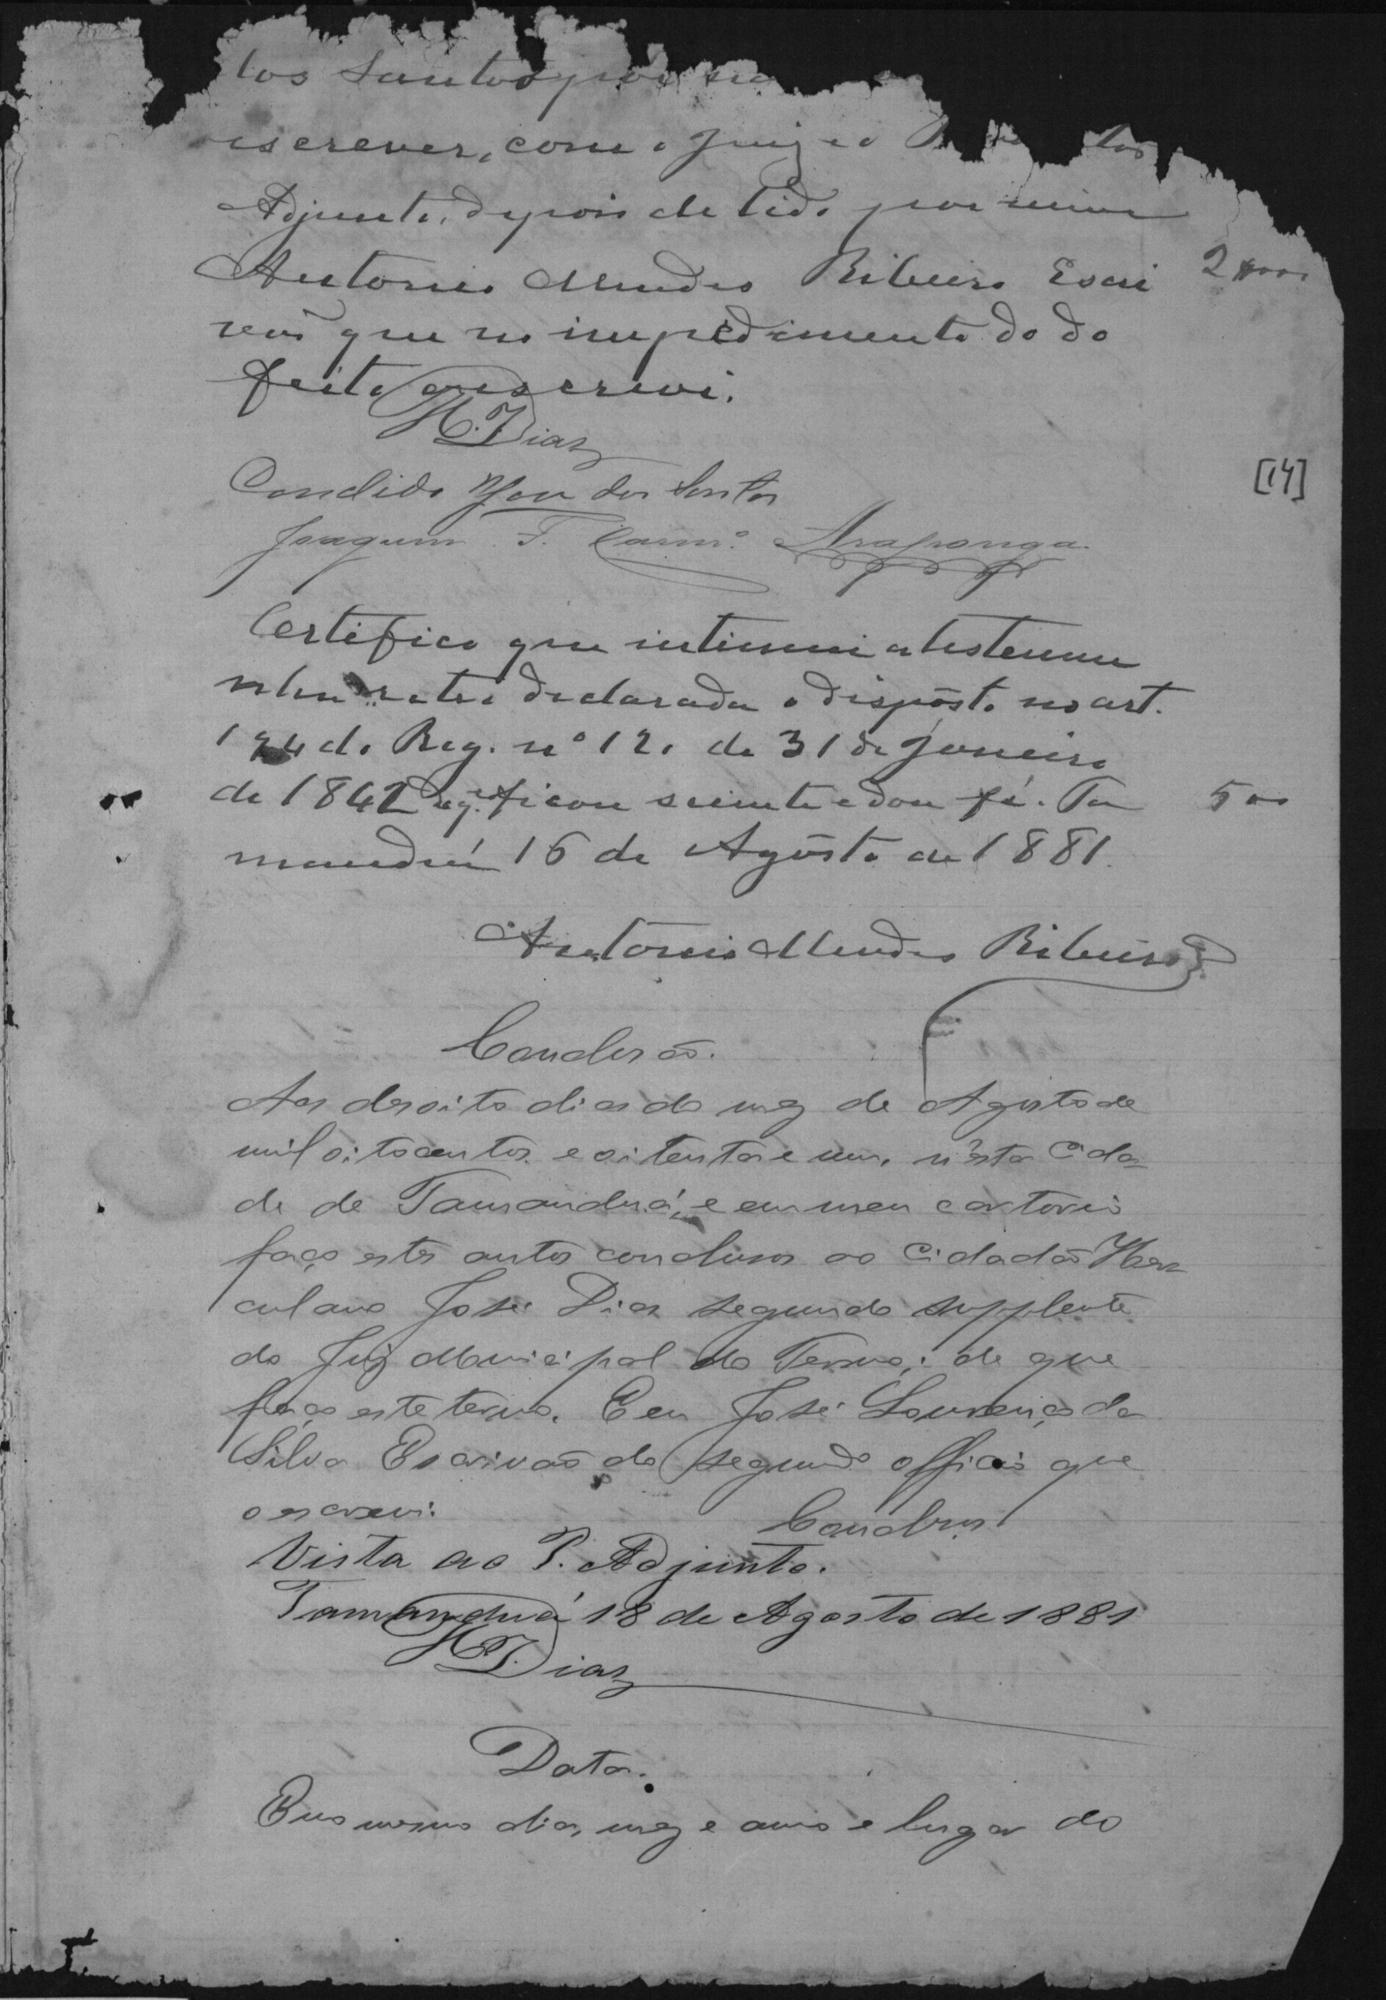 tos Santos por
escrever, com o Juiz e o
Adjunto, depois de lido por mim
Antonio Mendes Ribeiro Escri
vão que no impedimento do do
feito o escrevi.
2000
H. J. Dias
[14]
Candido José dos Santos
Joaquim F. Carmo. Araponga
Certifico que intimei a testemu
nha retro declarada o disposto no art.
194 do Reg. nº 120 de 31 de Janeiro
de 1842 ficou sciente e dou fé. Ta
500
manduá 16 de Agôsto de 1881.
Antonio Mendes Ribeiro
Conclusão.
Aos desoito dias do mez de Agosto de
mil oitocentos e oitenta e um, n'esta Cida
de de Tamanduá, e em meu cartorio
faço estes autos conclusos ao Cidadão Her
culano José Dias segundo supplente
do Juiz Municipal do Termo; de que
faço este termo. Eu José Lourenço da
Silva Escrivão do segundo officio que
o escrevi.
Conclusos
Vista ao P. Adjunto.
Tamanduá 18 de Agosto de 1881
H. J. Dias
Data.
E no mesmo dia, mez e anno e lugar do